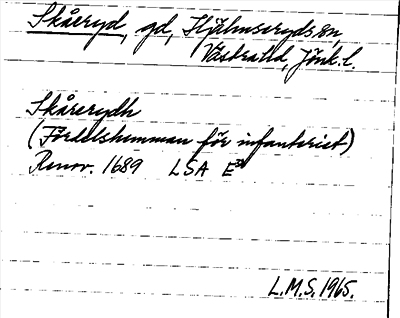 Skåreryd, gd, Hjälmseryds sn,
Västra hd, Jönk. l.
Skårerydh
(Fördelshemman för infanteriet)
Renov. 1689 LSA E
L.M.S. 1965.